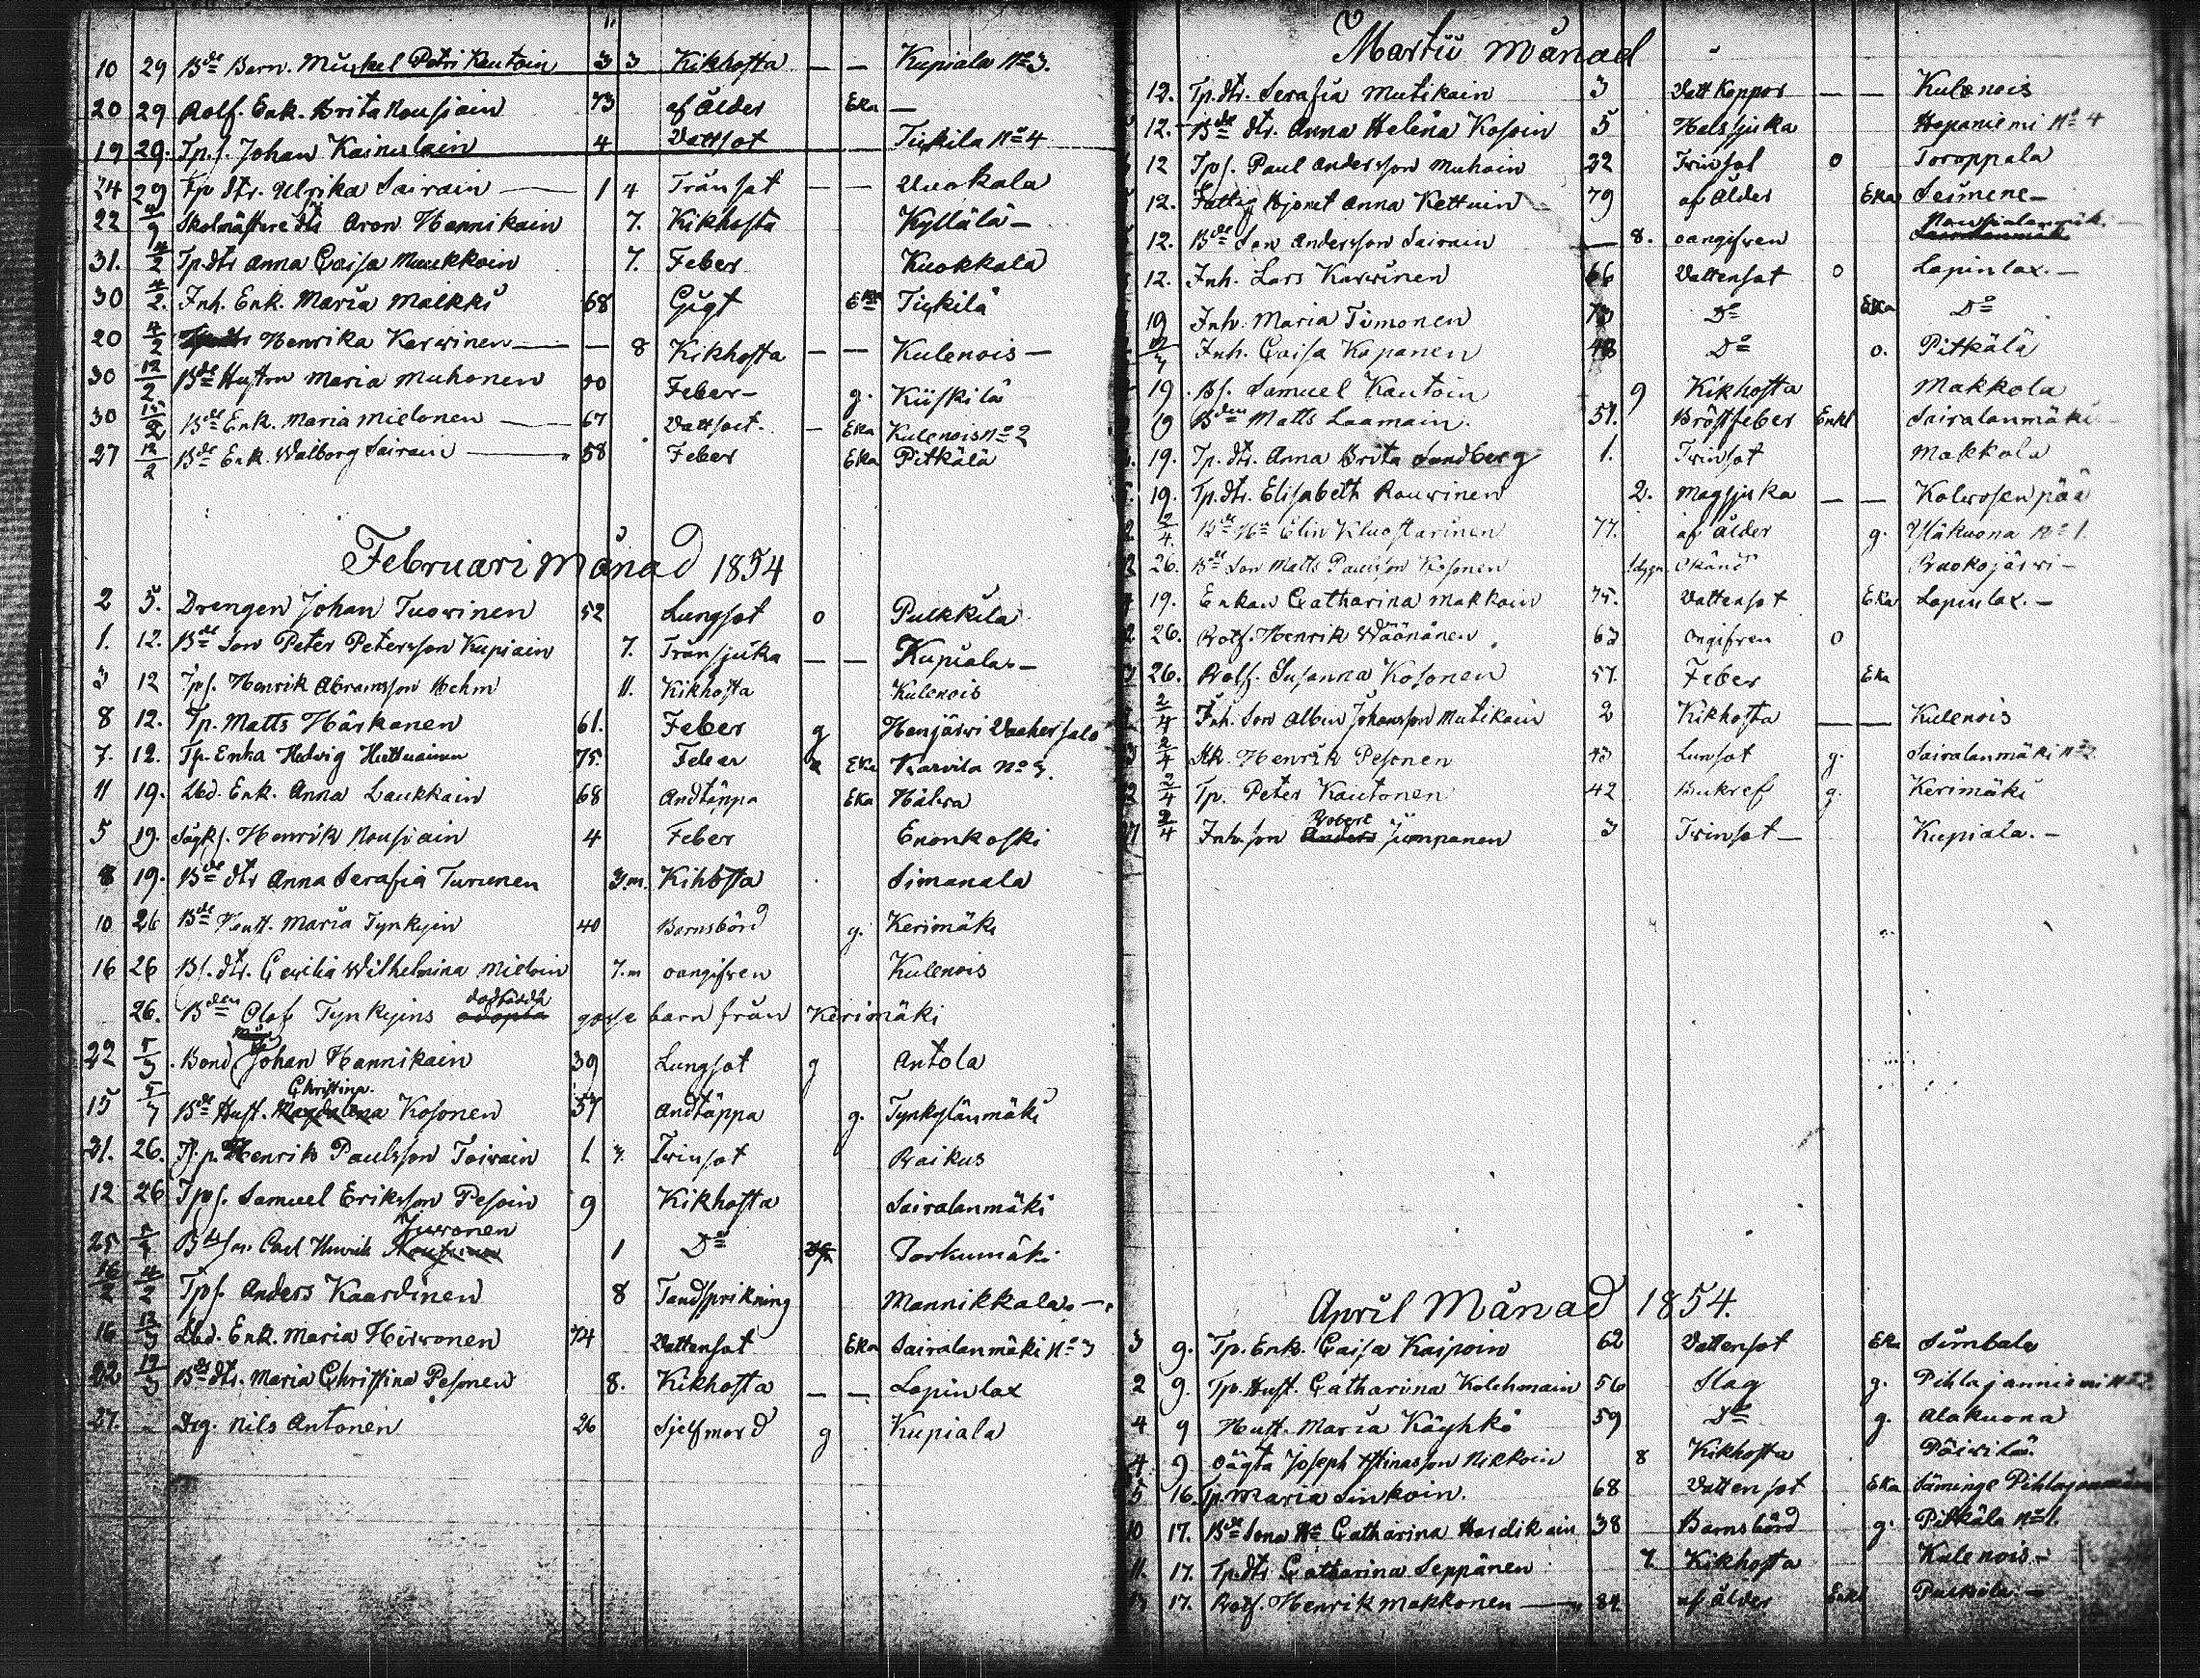 10 29 Bde Barn. Michel Petri Kautoin 3 3 Kikhosta — — Kupiala No 3.
20 29 Rolf. Enk. Brita Nousiain 73 af Ålder Eka —
19 29. Tp.s. Johan Kainulain 4 Vattsot Tiykila No 4
24 29 Tp dtr. Ulrika Sairain — 1 4 Trånsot — — Vuokala
22 Skolmästere Aron Hannikain 7. Kikhosta Kyllälä —
31. 4/2 Tp.dtr Anna Caisa Muukkoin 7. Feber Kuokkala
30 4/2. Inh. Enk. Maria Malkki 68 Gigt Eka Tiykilä
20 4/2 Henrika Karvinen — — 8 Kikhosta — — Kulenois —
30 12/2 Bde Hustru Maria Muhonen 50 Feber — g. Kiiskilä
30 12/2 Bde Enk. Maria Mielonen — 67 Vattsot. — Eka Kulenois No 2
27 12/2 Bde Enk. Walborg Sairain — 58 Feber Eka Pitkälä
Februari månad 1854
2 5. Drengen Johan Tuovinen 52 Lungsot o Pulkkila
1. 12. Bde Son Peter Petersson Kupiain 7. Trånsjuka — — Kupiala. —
3 12 Tps. Henrik Abramsson Behm 11. Kikhosta Kulenois
8 12. Tp. Matts Härkänen 61. Feber g Hanjärvi Vaahersalo
7. 12. Tp. Enka Hedvig Huttunainen 75. Feber Eka Karvila No 3.
11 19. Lbd. Enk. Anna Laukkain 68 Andtäppa Eka Hälvä
5 19. Sågks. Henrik Nousiain 4 Feber Enonkoski
8 19. Bde dtr Anna Serafia Turunen 3.m. Kikhosta Simanala
10 26 Bde Hust. Maria Tynkyin 40 Barnsbörd g. Kerimäki
16 26 Bs. dtr. Cecilia Wilhelmina Mieloin 7.m oangifven Kulenois
26. Bden Olof Tynkyins dödfödda gosse barn från Kerimäki
22 5/3 Bond Johan Hannikain 39 Lungsot g Antola
15 Bde Hust. Christina Magdalena Kosonen 57 Andtäppa g. Tynkylänmäki
21. 26. Tp. Henrik Paulsson Toivain 1. 3. Tvinsot Raikus
12 26 Tps. Samuel Eriksson Pesoin 9 Kikhosta Sairalanmäki
25 Bde son Carl Henrik Juvonen 1 Do Torkumäki
16/2 4/2 Tps. Anders Kaardinen 8 Tandsprikning Mannikkala. —
16 12/3 Lbd. Enk. Maria Hirvonen 74 Vattensot Eka Sairalanmäki No 3
22 12/3 Bde dtr. Maria Christina Pesonen 8. Kikhosta — — Lapinlax
27. Drg. Nils Antonen 26 Sjelfmord g Kupiala
Martii Månad
12. Tp.dtr. Serafia Mutikain 3 Vatt Koppor — — Kulenois
12. Bde dtr. Anna Helena Kosoin 5 Halssjuka Hapaniemi No 4
12 Tps. Paul Andersson Muhoin 22 Tvinsot o Toroppala
12. Fattig Hjonet Anna Kettuin — 79 af Ålder Eka Seimene —
12. Bde Son Andersson Sairain — 8. oangifven
12. Inh. Lars Karvinen 66 Vattensot o Lapinlax. —
19 Inh. Maria Timonen Do Eka Do
Inh. Caisa Kapanen 48 Do o. Pitkälä
19. Bs. Samuel Kautoin 9 Kikhosta Makkola
19 Bden Matts Laamain. 51. Bröstfeber Enkl Sairalanmäki
19. Tp. dtr. Anna Brita Sandberg 1. Tvinsot Makkola
19. Tp. dtr. Elisabeth Rouvinen 2. Magsjuka — — Kolvosenpää
2/4. Bde Ha Elin Kluostarinen 77. af Ålder g. Yläkuona No 1.
26. Bde Son Matts Paulsson Kosonen 1 dygn. Okänd Ruokojärvi —
19. Enkan Catharina Makkoin 75. Vattensot Eka Lapinlax. —
26. Rotf. Henrik Väänänen 63 Oangifven o
26. Rotf. Susanna Kosonen 57. Feber Eka
2/4 Inh. Son Albin Johansson Mutikain 2 Kikhosta — — Kulenois
2/4 Henrik Pesonen 43 Lunsot g. Sairalanmäki No 2
2/4 Tp. Peter Kautonen 42 Bukref g. Kerimäki
2/4 Inh. son Robert Anders Jumpanen 3 Tvinsot — Kupiala. —
April Månad 1854.
3 9. Tp. Enk. Caisa Kaipoin 62 Vattensot Eka Simbala
2 9. Tp. Hust. Catharina Kolehmain 56 Slag g. Pihlajanniemi No 2
4 9 Hust. Maria Käyhkö 59 Do g. Alakuona
4 9 oägta Joseph Nikkoin 8 Kikhosta Päivilä
5 16. Tp. Maria Sinkoin. 68 Vattensot Eka Säminge
10 17. Bde Sona Ha Catharina Hardikain 38 Barnsbörd g. Pitkälä No 1.
11. 17. Tp.dtr Catharina Seppänen 7. Kikhosta Kulenois —
17. Rotf. Henrik Makkonen — 82 af Ålder Enkl